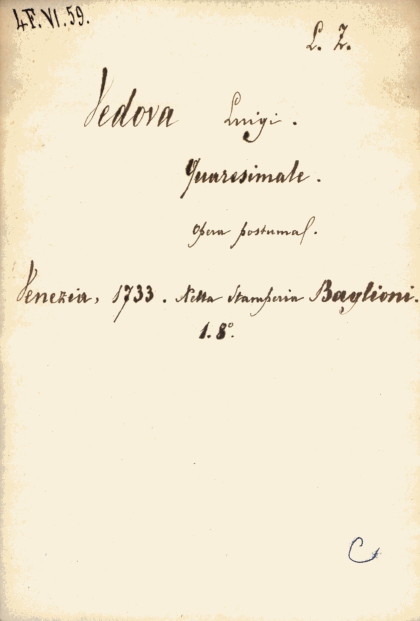 4F.VI.59.
L. Z.
Vedova Luigi.
Quaresimale.
Opera postuma.
Venezia, 1733. Nella Stamperia Baglioni.
1. 8º.